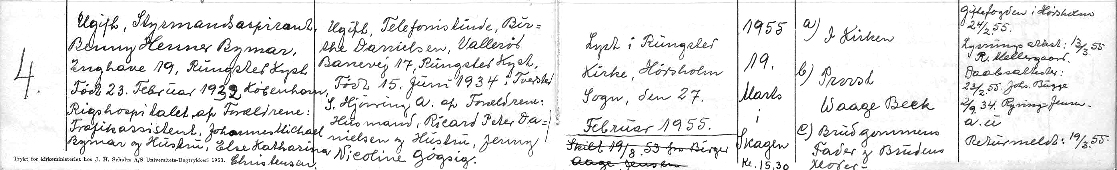 4.
Ugift, Styrmandsaspirant,
Benny Henner Bymar,
Enghave 19, Rungsted Kyst
Født 23. Februar 1932 København,
Rigshospitalet af Forældrene:
Trafikassistent, Johannes Michael
Bymar og Hustru, Else Katharina
Christensen.
Trykt for kirkeministeriet hos J. H. Schultz A/S Universitets-Bogtrykkeri 1951.
Ugift, Telefonistinde, Bir-
the Danielsen, Vallerød
Banevej 17, Rungsted Kyst,
Født 15. Juni 1934 i Tversted
S. Hjørring A. af Forældrene:
Husmand, Ricard Peter Da-
nielsen og Hustru, Jenny
Nicoline
Lyst i Rungsted
Kirke, Hørsholm
Sogn, den 27.
Februar 1955.
Skilt 19/8 53 fra Birger
Aage Jensen
1955
19.
Marts
i
Skagen
Kl. 15,30
a) I Kirken
b) Provst
Waage Beck
c) Brudgommens
Fader og Brudens
Giftefogden i Hørsholm
24/2 55.
Lysningsattest: 13/3 55
R. Mellergaard.
Daabsattester:
23/2 55. Johs. Bügge
2/9 34. Ryning Jens.
a. u
Returmeldt: 19/3 55.